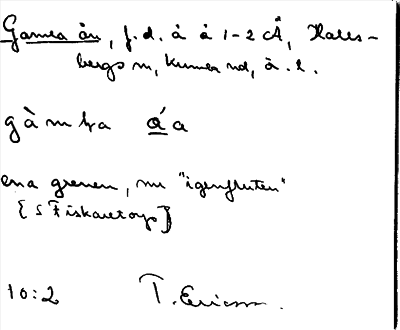 Gamla ån, f.d. å å 1-2 cÅ, Hales-
bergs sn, Kumla hd, å. 2.
gàmḷa ǫ́a
ena grenen, nu "igenfluten"
[S Fiskaretorp]
10:2 T. Ericsson.